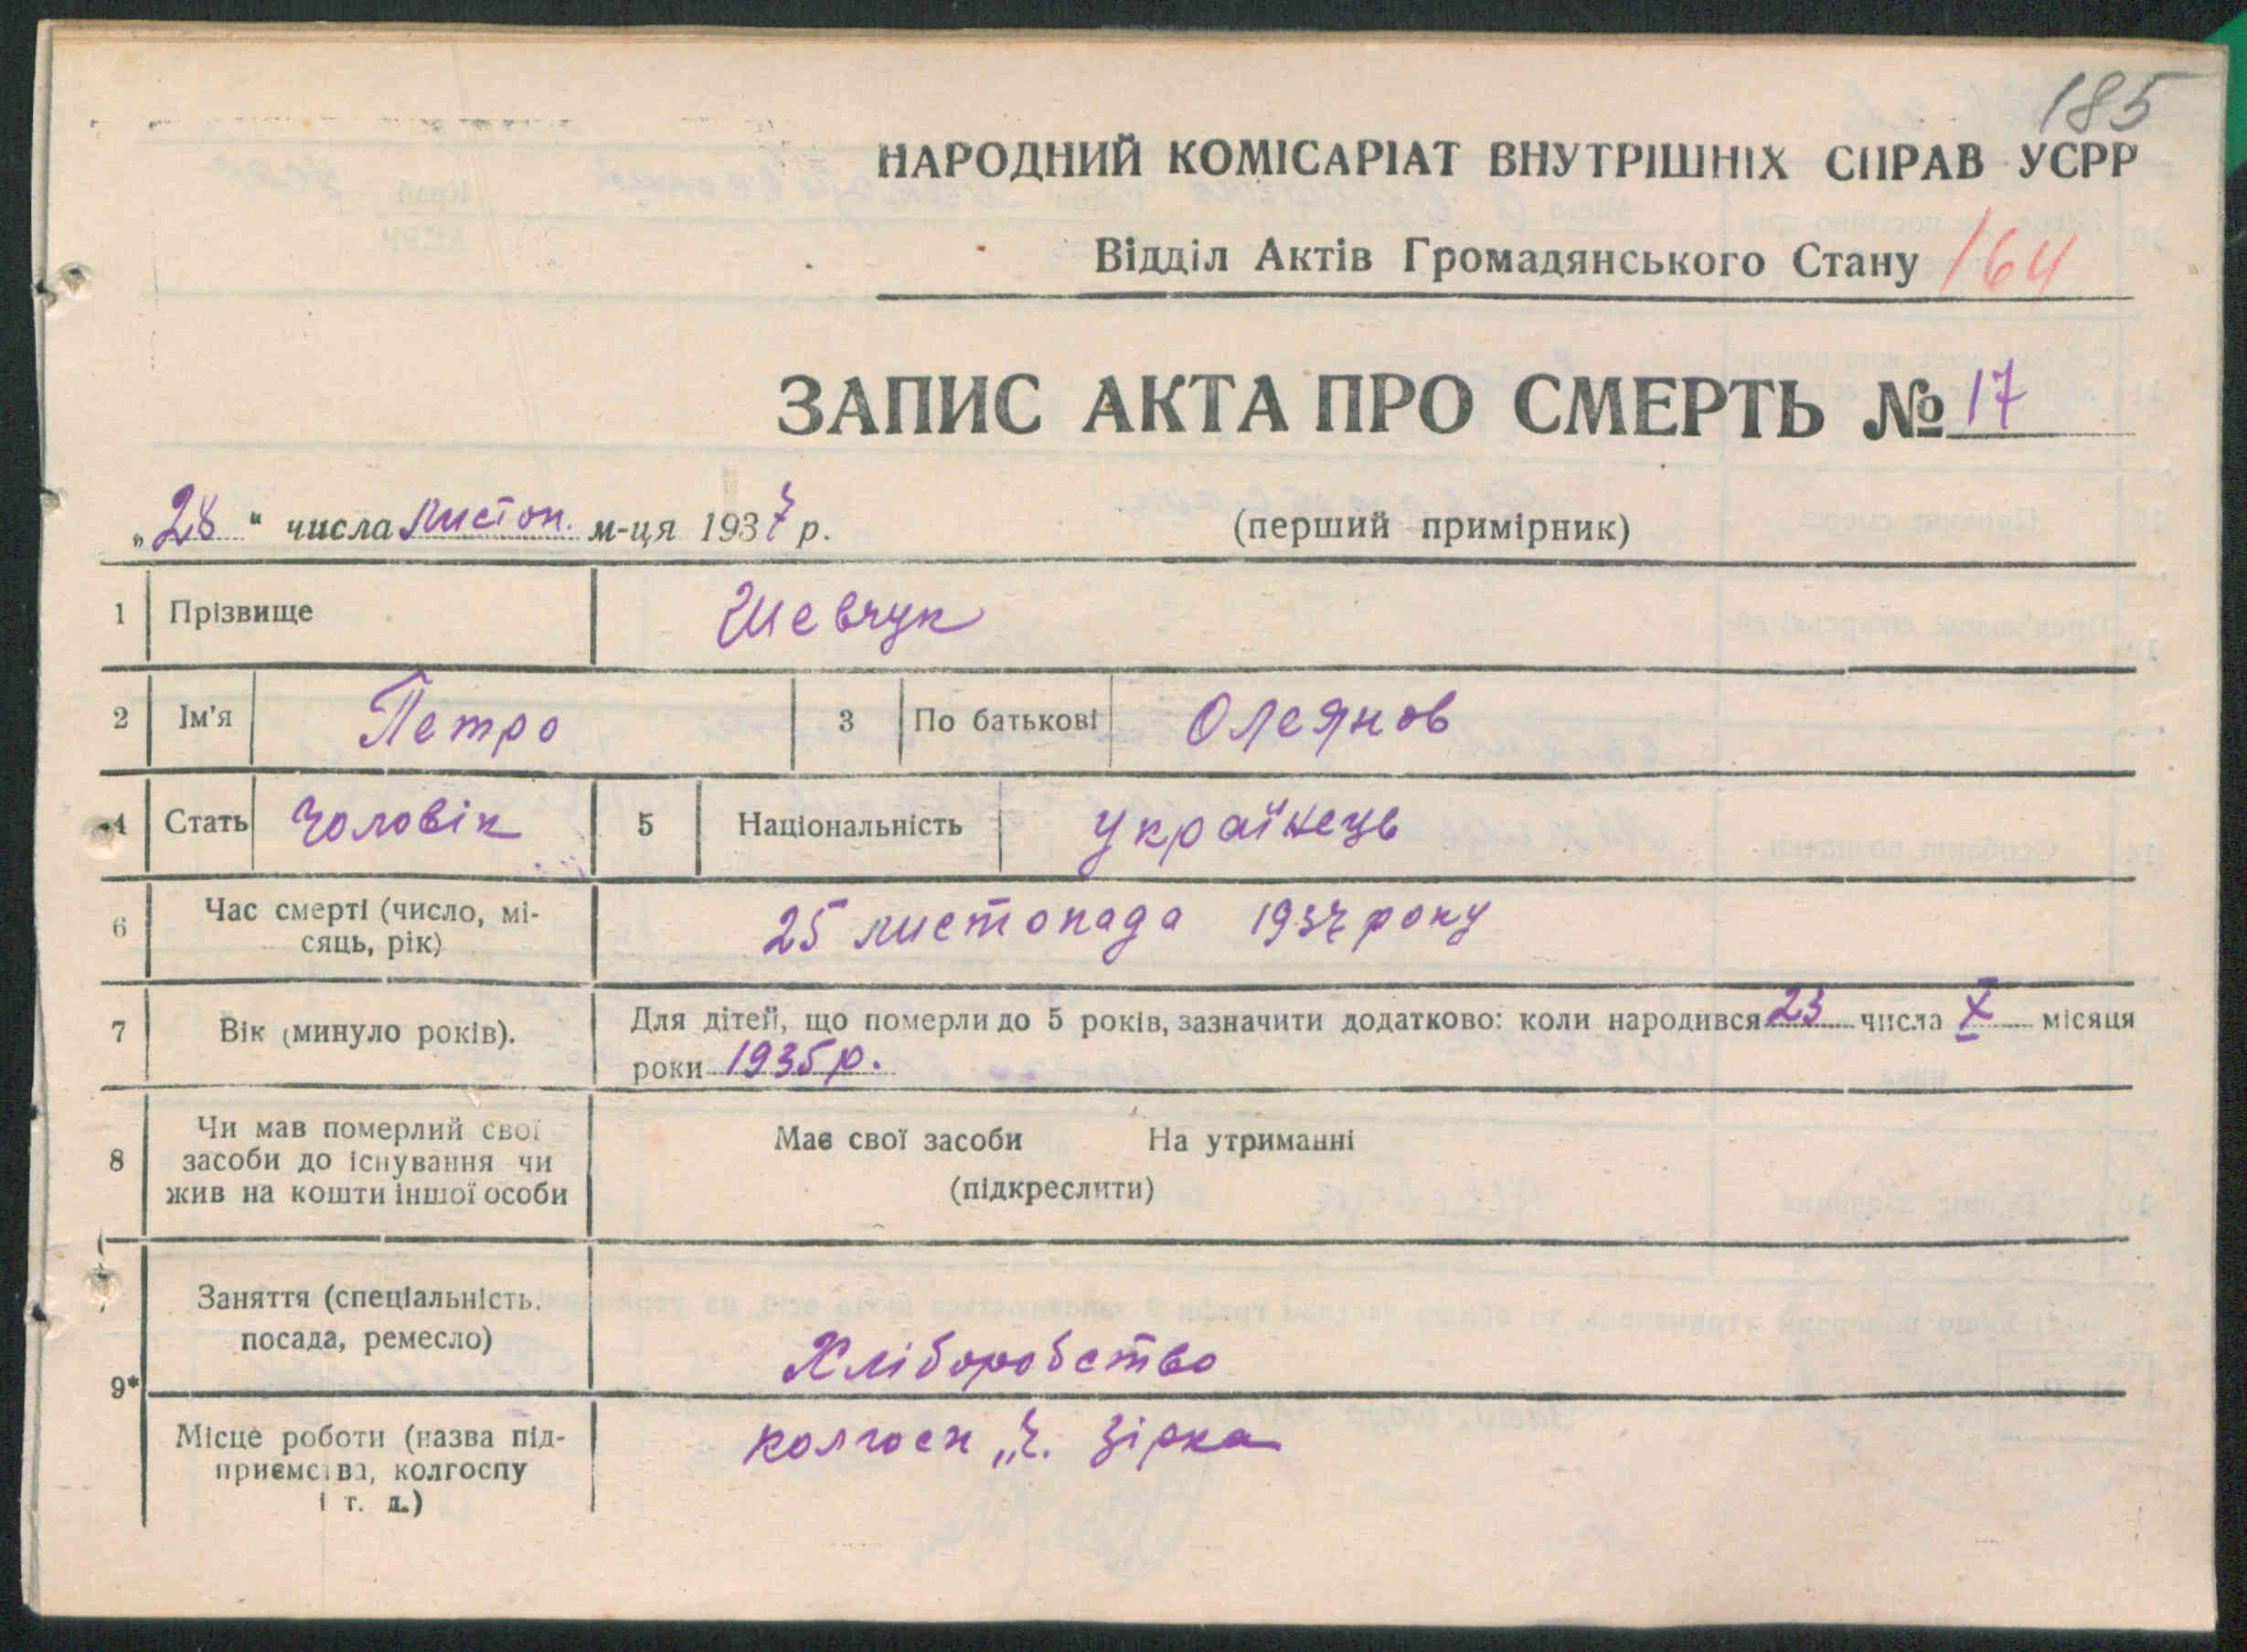 185
НАРОДНИЙ КОМІСАРІАТ ВНУТРІШНІХ СПРАВ УСРР
Відділ Актів Громадянського Стану 164
ЗАПИС АКТА ПРО СМЕРТЬ № 17
„28“ числа листоп. м-ця 1937 р.
(перший примірник)
1 Прізвище Шевчук
2 Ім'я Петро 3 По батькові Олеянов
4 Стать Чоловік 5 Національність Українець
6 Час смерті (число, мі-
сяць, рік) 25 листопада 1937 року
7 Вік (минуло років). Для дітей, що померли до 5 років, зазначити додатково: коли народився 23 числа X місяця
роки 1935 р.
8 Чи мав померлий свої
засоби до існування чи
жив на кошти іншої особи
Має свої засоби На утриманні
(підкреслити)
9* Заняття (спеціальність.
посада, ремесло) Хліборобство
Місце роботи (назва під-
приємства, колгоспу
і т. д.)
колгосп „Ч. Зірка